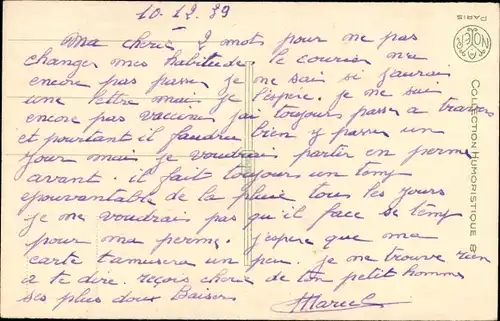 10.12.39
Ma cherie 2 mots pour ne pas
changer mes habitude. le courier n'a
encore pas passer je ne sai si j'aurais
une lettre mais je l'espere. je ne sui
encore pas vaccine j'ai toujours passer a travers
et pourtant il faudra bien y passer un
jour mai je voudrais partir en perme
avant. il fait toujours un temp
epouvantable de la pluie tous les jours
je ne voudrais pas qu'il face se temp
pour ma perme. j'espere que ma
carte t'amusera un peu. je ne trouve rien
a te dire. reçois cherie de ton petit homme
ses plus doux Baisers
Marcel
NOYER
PARIS
COLLECTION HUMORISTIQUE 8